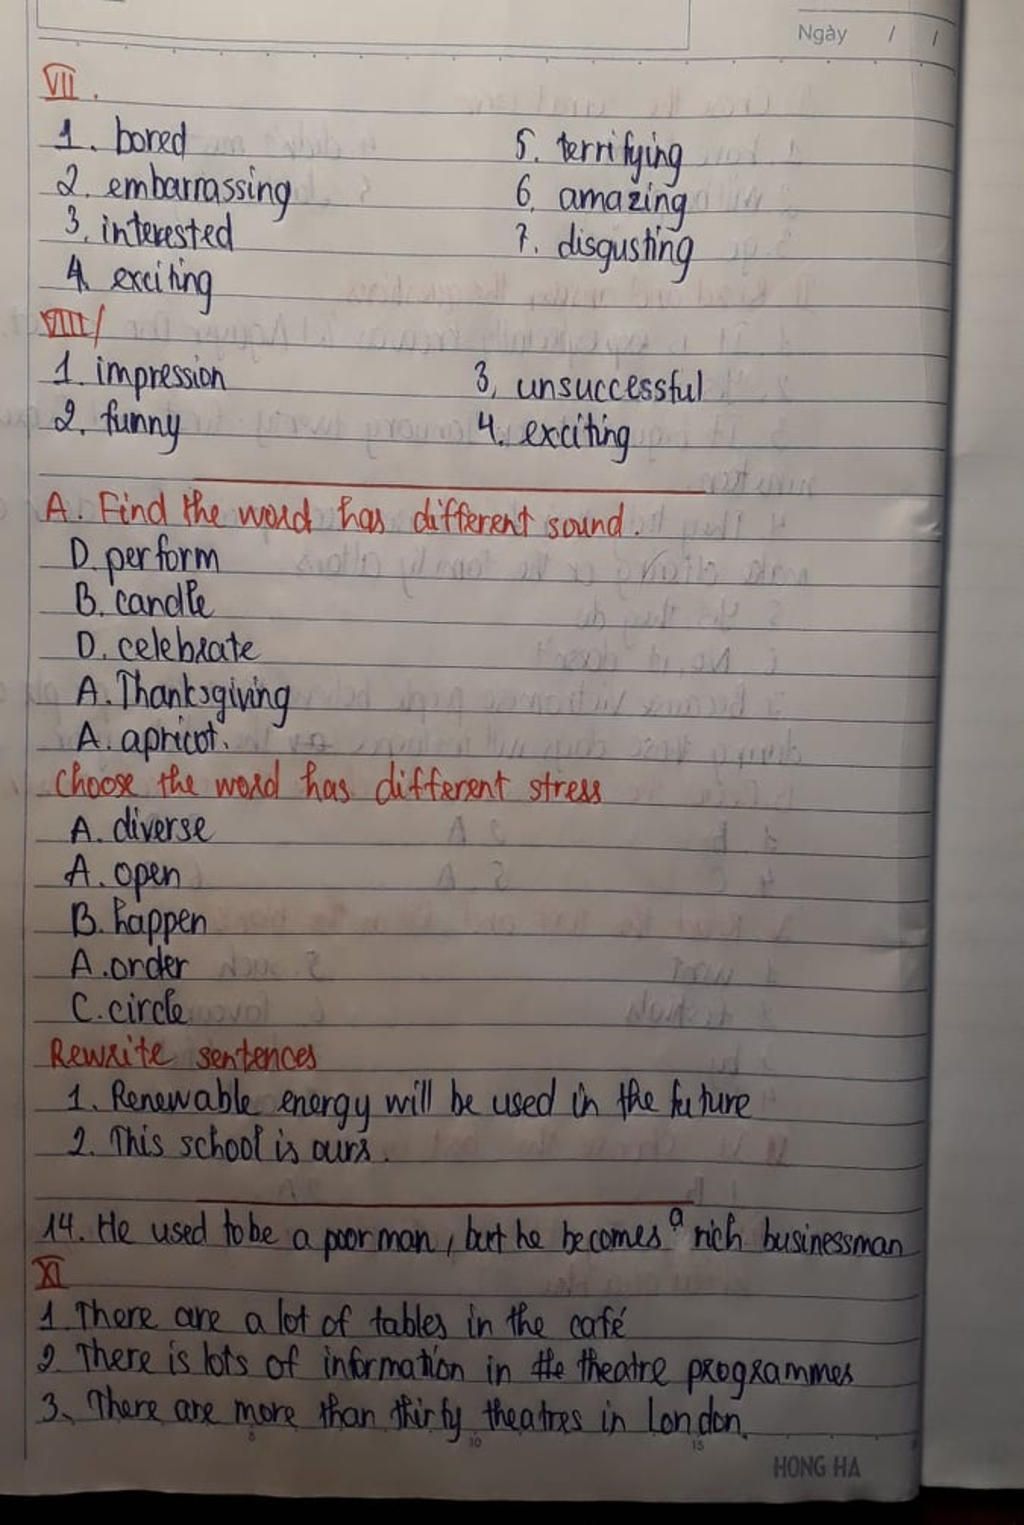 Ngày / /
VII.
1. bored 5. terrifying
2. embarrassing 6. amazing
3. interested 7. disgusting
4. exciting
VIII/
1. impression 3, unsuccessful
2. funny 4. exciting
A. Find the word has different sound.
D. perform
B. candle
D. celebrate
A. Thanksgiving
A. apricot.
Choose the word has different stress
A. diverse
A. open
B. happen
A. order
C. circle
Rewrite sentences
1. Renewable energy will be used in the future
2. This school is ours.
14. He used to be a poor man, but he becomes a rich businessman
XI
1. There are a lot of tables in the café
2. There is lots of information in the theatre programmes
3. There are more than thirty theatres in London.
5 10 15
HONG HA